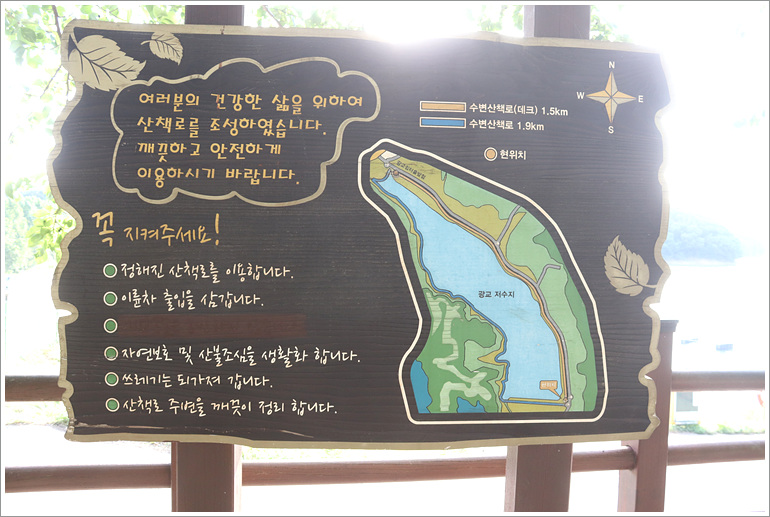 여러분의 건강한 삶을 위하여
산책로를 조성하였습니다.
깨끗하고 안전하게
이용하시기 바랍니다.
꼭 지켜주세요!
정해진 산책로를 이용합니다.
이륜차 출입을 삼갑니다.
자연보호 및 산불조심을 생활화 합니다.
쓰레기는 되가져 갑니다.
산책로 주변을 깨끗이 정리 합니다.
N
W E
S
수변산책로(데크) 1.5km
수변산책로 1.9km
현위치
광교 저수지